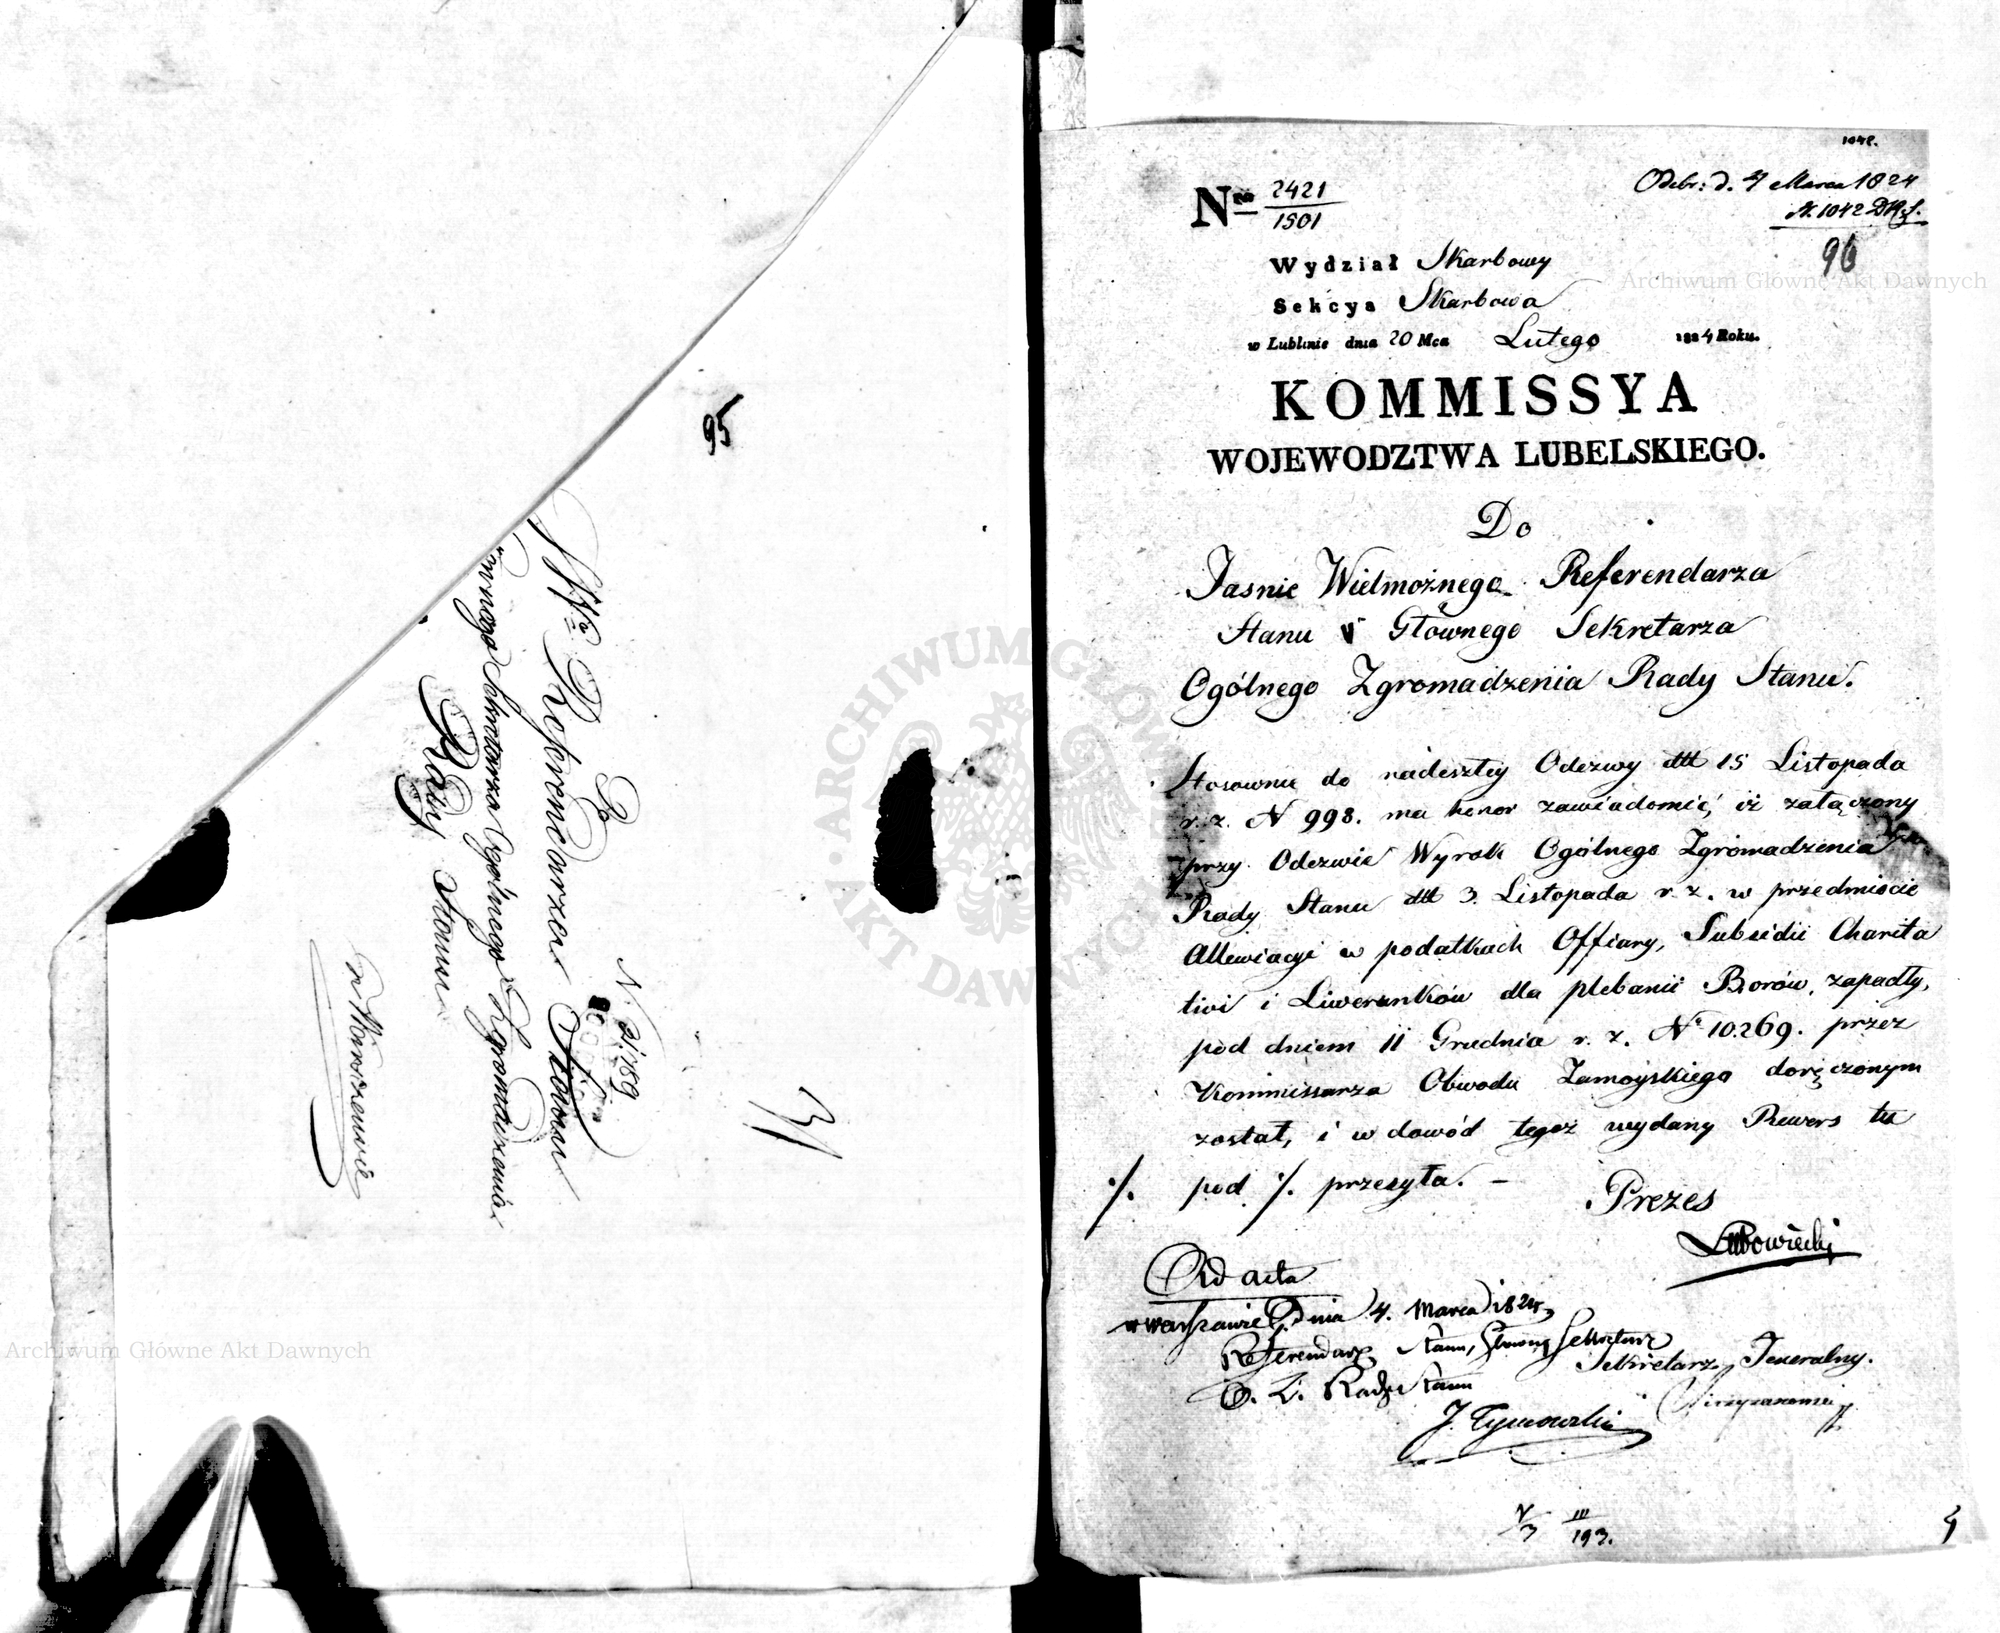 95
Do
JWo Referendarza Stanu
Sekretarza Ogólnego Zgromadzenia
Rady Stanu
w Warszawie
N. 21.189
1042.
Odebr: d. 4 Marca 1824
N. 1042 D.R.S.
96
Nro 2421
1501
Wydział Skarbowy
Sekcya Skarbowa
w Lublinie dnia 20 Mca Lutego 1824 Roku.
KOMMISSYA
WOJEWODZTWA LUBELSKIEGO.
Do
Jasnie Wielmożnego Referendarza
Stanu Głównego Sekretarza
Ogólnego Zgromadzenia Rady Stanu.
Stosownie do nadeszłey Odezwy dtt 15 Listopada
r. z. N 998. ma honor zawiadomić, iż załączony
przy Odezwie Wyrok Ogólnego Zgromadzenia
Rady Stanu dtt 3. Listopada r. z. w przedmiocie
Allewiacyi w podatkach Offiary, Subsidii Charita
tivi i Liwerunków dla plebanii Borów, zapadły,
pod dniem 11 Grudnia r. z. No 10.269. przez
Kommissarza Obwodu Zamoyskiego doręczonym
został, i w dowód tegoż wydany Rewers tu
·/. pod ·/. przesyła. –
Prezes
Lubowiecki
Ad acta
w Warszawie Dnia 4. Marca 1824
Referendarz Stanu, Główny Sekretarz
O. Z. Rady Stanu
J. Tymowski
Sekretarz Jeneralny.
III
193.
ARCHIWUM GŁÓWNE AKT DAWNYCH
Archiwum Główne Akt Dawnych
Archiwum Główne Akt Dawnych